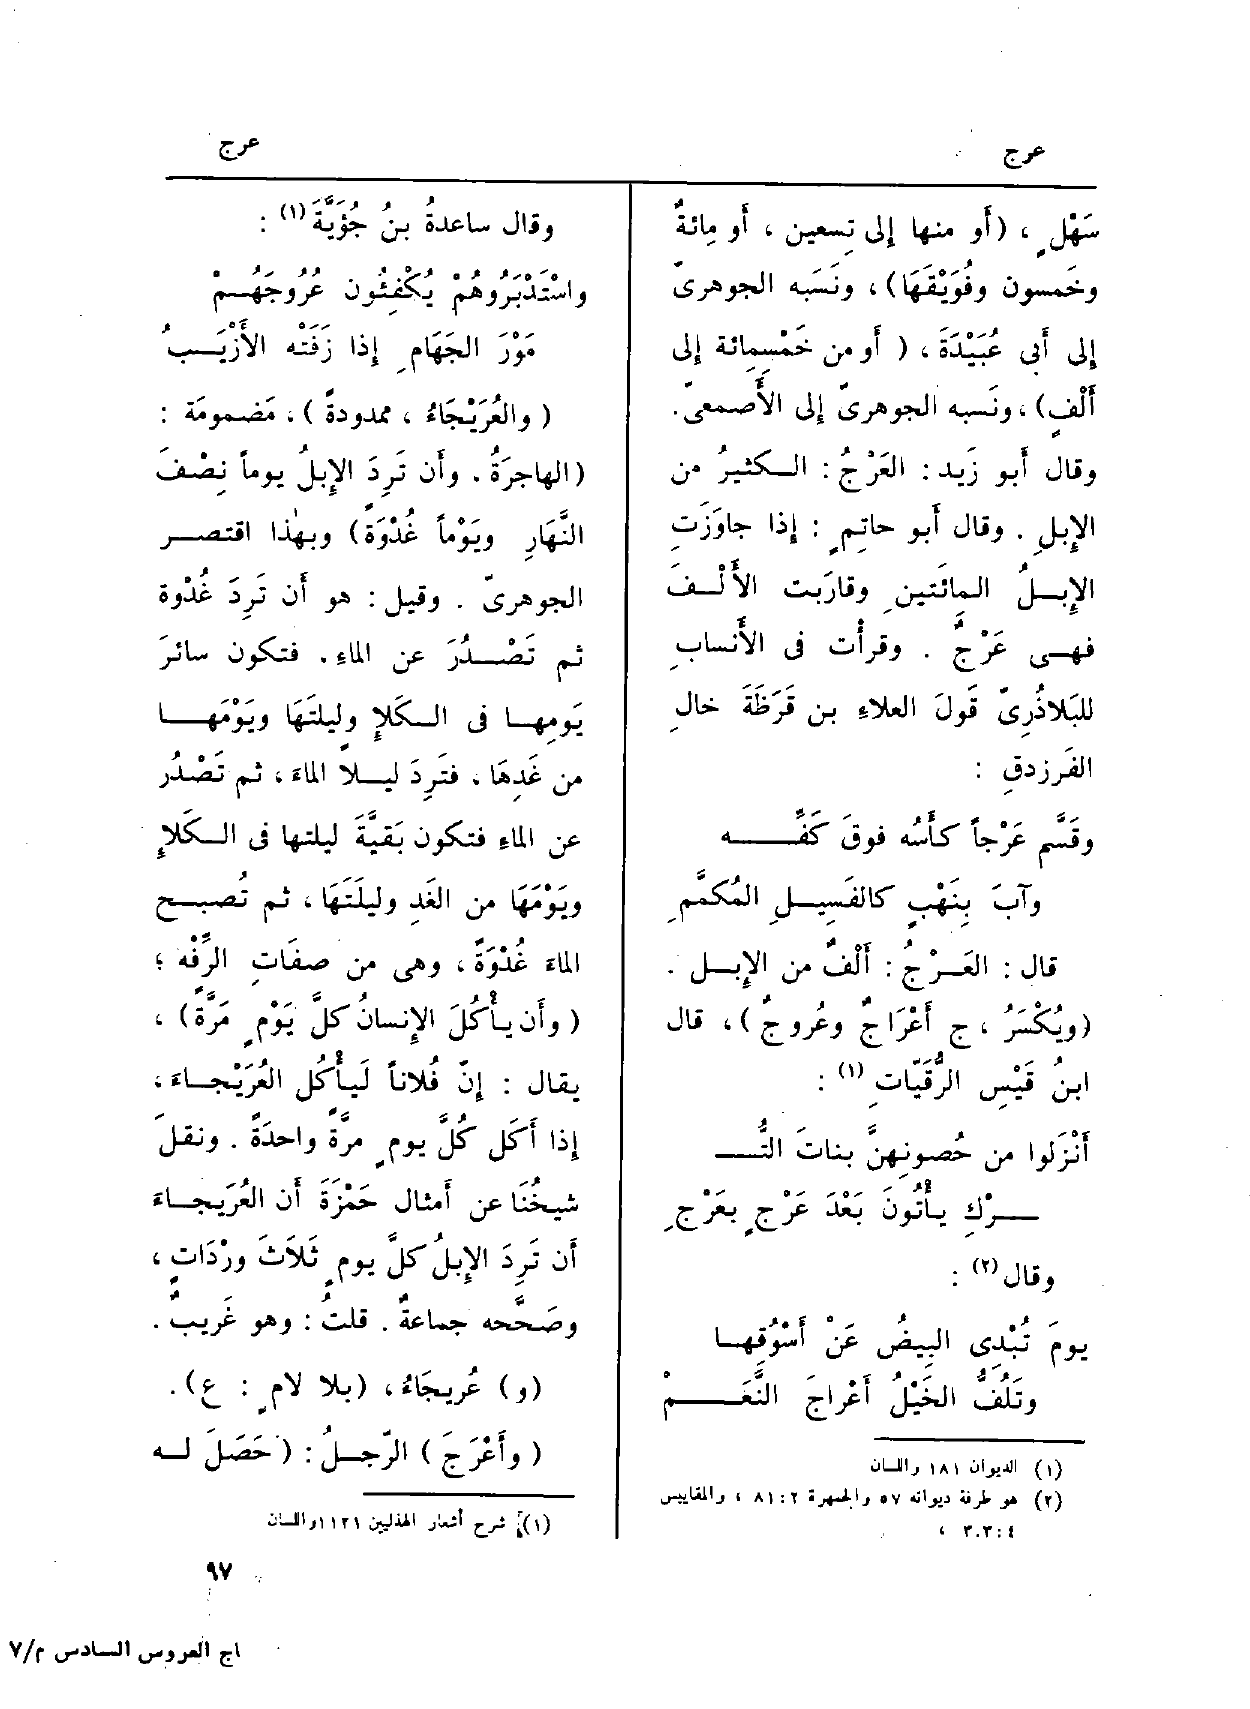 عرج
سَهْلٍ ، (أَو منها إلى تِسعين ، أَو مِائةٌ
وخَمسون وفُوَيْقَهَا)، ونَسَبه الجوهرىّ
إلى أَبى عُبَيْدَةَ ، ( أَو من خَمْسِمِائة إلى
أَلْفٍ) ، ونَسبه الجوهرىّ إلى الأَصمعىّ.
وقال أَبو زَيد : العَرْجُ : الـكثيرُ من
الإِبلِ . وقال أَبو حاتِمٍ : إِذا جاوَزَتِ
الإِبـلُ المِائَتينِ وقارَبت الأَلْـفَ
فهـى عَرْجٌ . وقرأْت فى الأَنسابِ
للبَلاذُرِىّ قَولَ العلاءِ بن قَرَظَةَ خالِ
الفَرزدقِ :
وقَسَّم عَرْجاً كأْسُه فوقَ كَفِّـــه
وآبَ بِنَهْبٍ كالفَسِيـلِ المُكَمَّمِ
قال : العَـرْجُ : أَلْفٌ من الإِبـل .
(ويُكْسَرُ ، ج أَعْرَاجٌ وعُروجٌ)، قال
ابنُ قَيْسِ الرُّقَيّاتِ (١) :
أَنْزَلوا من حُصونهنَّ بناتَ التُّــ
ـــرْكِ يأْتُونَ بَعْدَ عَرْجٍ بعَرْجِ
وقال (٢) :
يومَ تُبْدِى البِيضُ عَنْ أَسْوُقِهـا
وتَلُفُّ الخَيْلُ أَعْراجَ النَّعَــــمْ
(١) الديوان ١٨١ واللسان
(٢) هو طرفة ديوانه ٥٧ والجمهرة ٢ : ٨١ ، والمقاييس
٤ : ٣٠٣ ،
عرج
وقال ساعدةُ بنُ جُؤَيَّةَ (١) :
واسْتَدْبَرُوهُمْ يُكْفِئُون عُرُوجَهُـمْ
مَوْرَ الجَهَامِ إِذا زَفَتْه الأَزْيَــبُ
( والعُرَيْجَاءُ ، ممدودةً ) ، مَضمومَة :
(الهاجِرَةُ . وأَن تَرِدَ الإِبلُ يوماً نِصْفَ
النَّهَارِ ويَوْماً غُدْوَةً) وبهٰذا اقتصـر
الجوهرىّ . وقيل : هو أَن تَرِدَ غُدْوة
ثم تَصْـدُرَ عن الماءِ . فتكون سائرَ
يَومِهـا فى الـكَلإِ وليلتَهَا ويَوْمَهـا
من غَدِهَا ، فتَرِدَ ليـلاً الماءَ ، ثم تَصْدُر
عن الماءِ فتكون بَقيَّةَ ليلتها فى الـكَلإِ
ويَوْمَهَا من الغَدِ وليلَتَهَا ، ثم تُصبـح
الماءَ غُدْوَةً ، وهى من صفَاتِ الرِّفْه ؛
( وأَن يأْكُلَ الإِنسانُ كلَّ يَوْمٍ مَرَّةً ) ،
يقال : إِنّ فُلاناً لَيأْكُل العُرَيْجـاءَ ،
إِذا أَكل كُلَّ يومٍ مرَّةً واحدَةً . ونقلَ
شيخُنَا عن أَمثال حَمْزَةَ أَن العُرَيجـاءَ
أَن تَرِدَ الإِبلُ كلَّ يومٍ ثَلاَثَ ورْدَاتٍ ،
وصَحَّحه جماعةٌ . قلتُ : وهو غَريبٌ .
(و) عُريجَاءُ ، (بلا لامٍ : ع) .
( وأَعْرَجَ ) الرّجـلُ : ( حَصَلَ لـه
(١) شرح أشعار الهذليين ١١٢١ واللسان
٩٧
اج العروس السادس م/٧